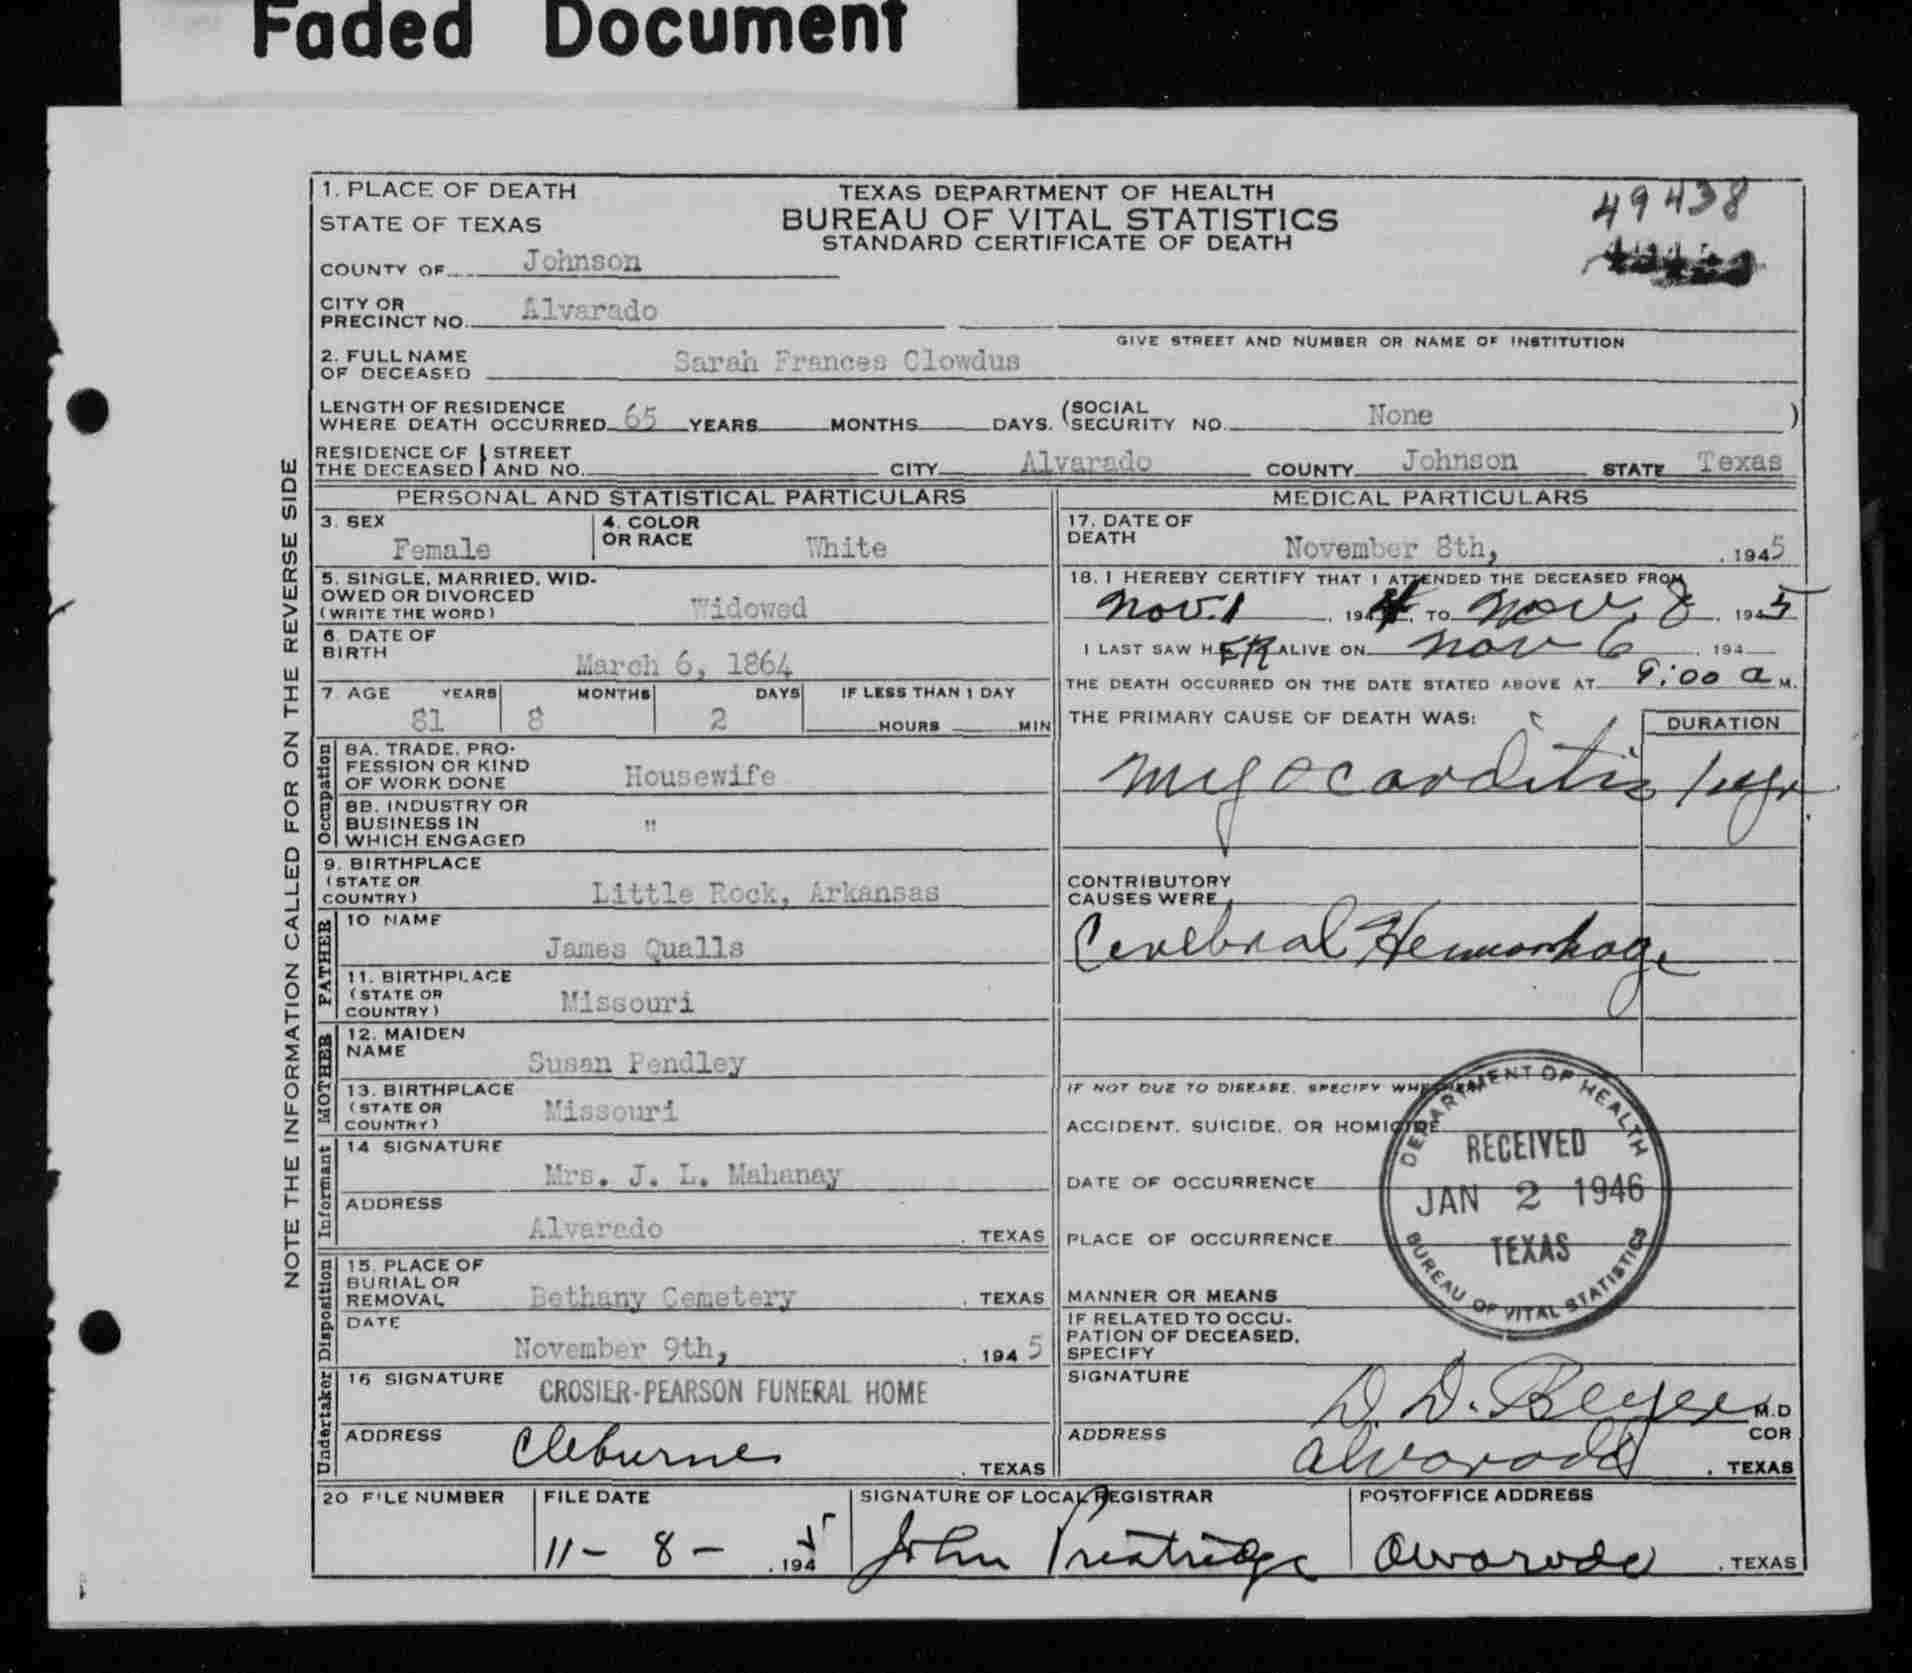 Faded Document
1. PLACE OF DEATH
STATE OF TEXAS
TEXAS DEPARTMENT OF HEALTH
BUREAU OF VITAL STATISTICS
STANDARD CERTIFICATE OF DEATH
49438
COUNTY OF Johnson
CITY OR
PRECINCT NO. Alvarado
GIVE STREET AND NUMBER OR NAME OF INSTITUTION
2. FULL NAME
OF DECEASED Sarah Frances Clowdus
LENGTH OF RESIDENCE
WHERE DEATH OCCURRED 65 YEARS MONTHS DAYS. (SOCIAL
SECURITY NO. None )
RESIDENCE OF
THE DECEASED
STREET
AND NO. CITY Alvarado COUNTY Johnson STATE Texas
NOTE THE INFORMATION CALLED FOR ON THE REVERSE SIDE
PERSONAL AND STATISTICAL PARTICULARS
3. SEX
Female
4. COLOR
OR RACE White
5. SINGLE, MARRIED, WID-
OWED OR DIVORCED
(WRITE THE WORD) Widowed
6. DATE OF
BIRTH
March 6, 1864
7. AGE YEARS MONTHS DAYS IF LESS THAN 1 DAY
81 8 2 HOURS MIN
Occupation
8A. TRADE, PRO-
FESSION OR KIND
OF WORK DONE Housewife
8B. INDUSTRY OR
BUSINESS IN
WHICH ENGAGED "
9. BIRTHPLACE
(STATE OR
COUNTRY) Little Rock, Arkansas
FATHER
10 NAME
James Qualls
11. BIRTHPLACE
(STATE OR
COUNTRY) Missouri
MOTHER
12. MAIDEN
NAME
Susan Pendley
13. BIRTHPLACE
(STATE OR
COUNTRY) Missouri
Informant
14 SIGNATURE
Mrs. J. L. Mahanay
ADDRESS
Alvarado . TEXAS
Disposition
15. PLACE OF
BURIAL OR
REMOVAL Bethany Cemetery . TEXAS
DATE
November 9th, . 194 5
Undertaker
16 SIGNATURE CROSIER-PEARSON FUNERAL HOME
ADDRESS Cleburne . TEXAS
MEDICAL PARTICULARS
17. DATE OF
DEATH November 8th, . 1945
18. I HEREBY CERTIFY THAT I ATTENDED THE DECEASED FROM
Nov. 1 , 194 4, TO Nov. 8 , 1945
I LAST SAW H ER ALIVE ON Nov 6 , 194
THE DEATH OCCURRED ON THE DATE STATED ABOVE AT 9:00 a M.
THE PRIMARY CAUSE OF DEATH WAS: DURATION
Myocarditis 1 yr.
CONTRIBUTORY
CAUSES WERE
Cerebral Hemorrhage
IF NOT DUE TO DISEASE, SPECIFY WHETHER
ACCIDENT, SUICIDE, OR HOMICIDE
DATE OF OCCURRENCE
PLACE OF OCCURRENCE
MANNER OR MEANS
IF RELATED TO OCCU-
PATION OF DECEASED,
SPECIFY
DEPARTMENT OF HEALTH
RECEIVED
JAN 2 1946
TEXAS
BUREAU OF VITAL STATISTICS
SIGNATURE
D. D. M.D
ADDRESS COR
Alvarado . TEXAS
20 FILE NUMBER FILE DATE SIGNATURE OF LOCAL REGISTRAR POSTOFFICE ADDRESS
11 - 8 - , 1945 John Alvarado . TEXAS